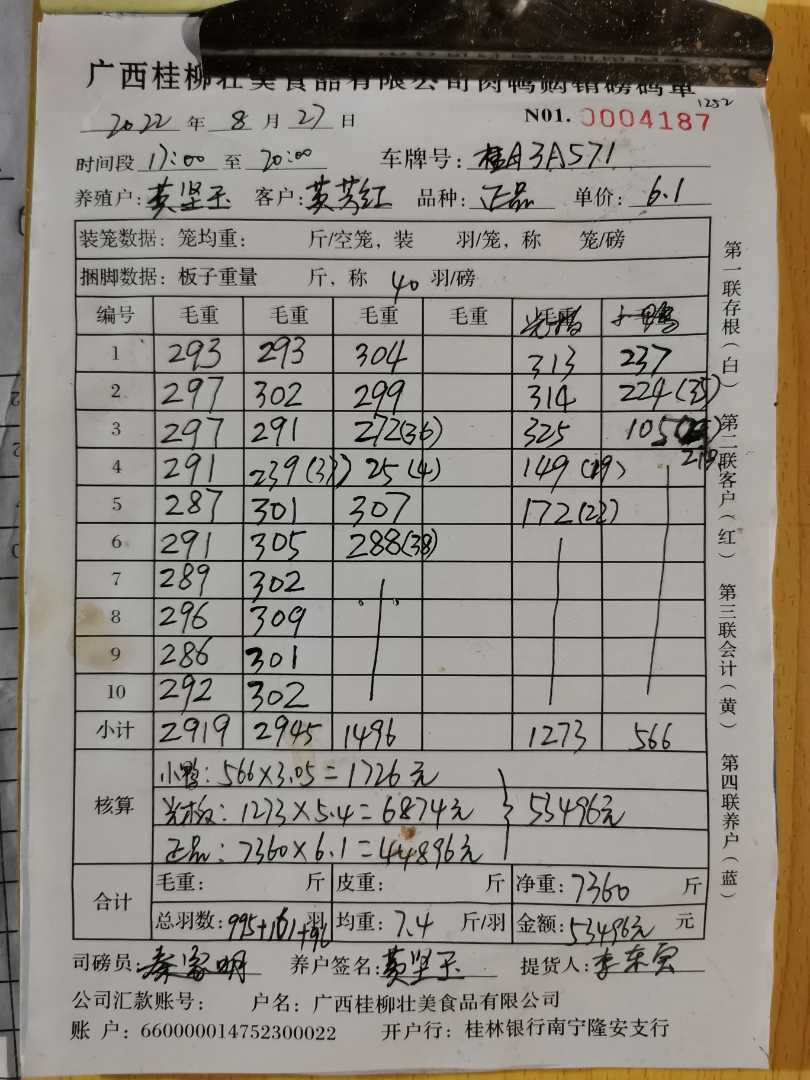 广西桂柳壮美食品有限公司肉鸭购销磅码单
1252
2022 年 8 月 27 日 N01. 0004187
时间段 17:00 至 20:00 车牌号: 桂A3A571
养殖户: 黄坚玉 客户: 黄芳红 品种: 正品 单价: 6.1
装笼数据: 笼均重: 斤/空笼, 装 羽/笼, 称 笼/磅
捆脚数据: 板子重量 斤, 称 40 羽/磅
编号 毛重 毛重 毛重 毛重 毛重 小鸭
1 293 293 304 313 237
2 297 302 299 314 224(35)
3 297 291 272(36) 325 105
4 291 239(33) 25(4) 149(19) 219
5 287 301 307 172(22)
6 291 305 288(38)
7 289 302
8 296 309
9 286 301
10 292 302
小计 2919 2945 1496 1273 566
核算
小鸭: 566×3.05=1726元
1273×5.4=6874元 53496元
正品: 7360×6.1=44896元
合计
毛重: 斤 皮重: 斤 净重: 7360 斤
总羽数: 995+161+96 羽 均重: 7.4 斤/羽 金额: 53496元 元
司磅员: 秦家明 养户签名: 黄坚玉 提货人: 李东
公司汇款账号: 户名: 广西桂柳壮美食品有限公司
账 户: 660000014752300022 开户行: 桂林银行南宁隆安支行
第一联存根(白)
第二联客户(红)
第三联会计(黄)
第四联养户(蓝)